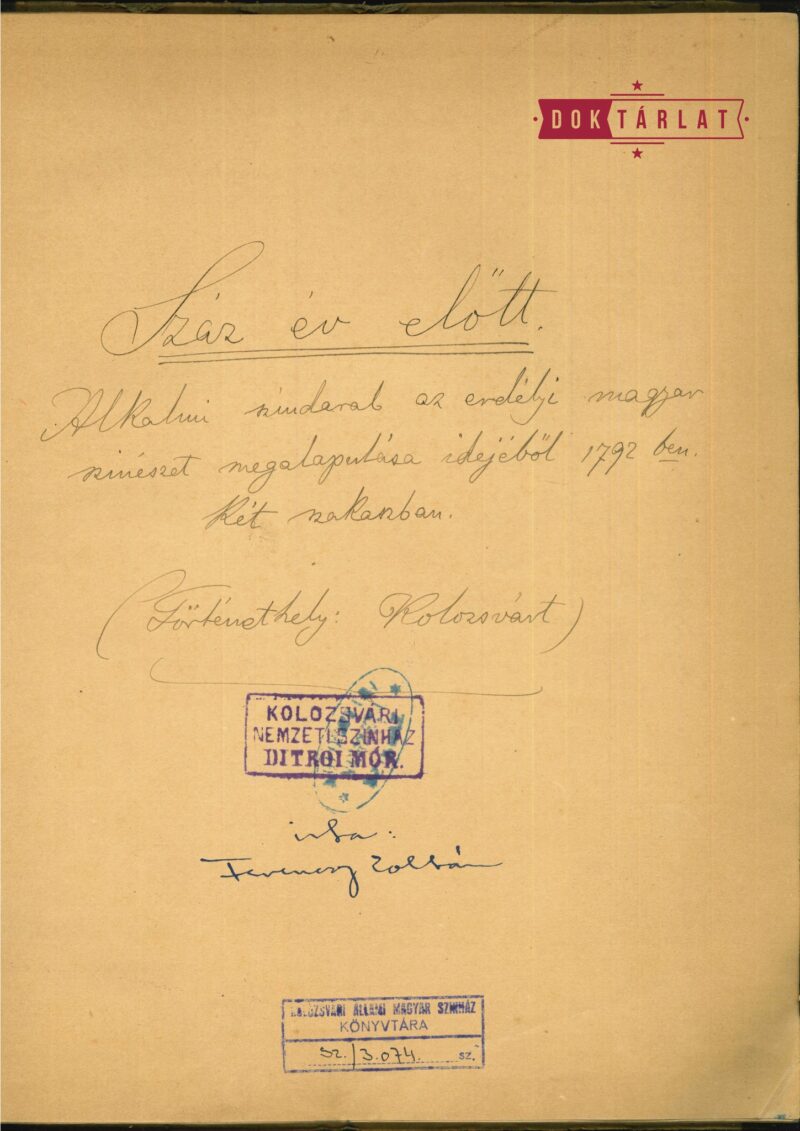 DOKTÁRLAT
Száz év előtt.
Alkalmi szindarab az erdélyi magyar
szinészet megalapulása idejéből 1792 ben.
Két szakaszban.
(Történethely: Kolozsvárt)
KOLOZSVÁRI
NEMZETI SZINHÁZ
DITRÓI MÓR.
irta:
Ferenczy Zoltán
KOLOZSVÁRI ÁLLAMI MAGYAR SZINHÁZ
KÖNYVTÁRA
Sz./3.074. sz.